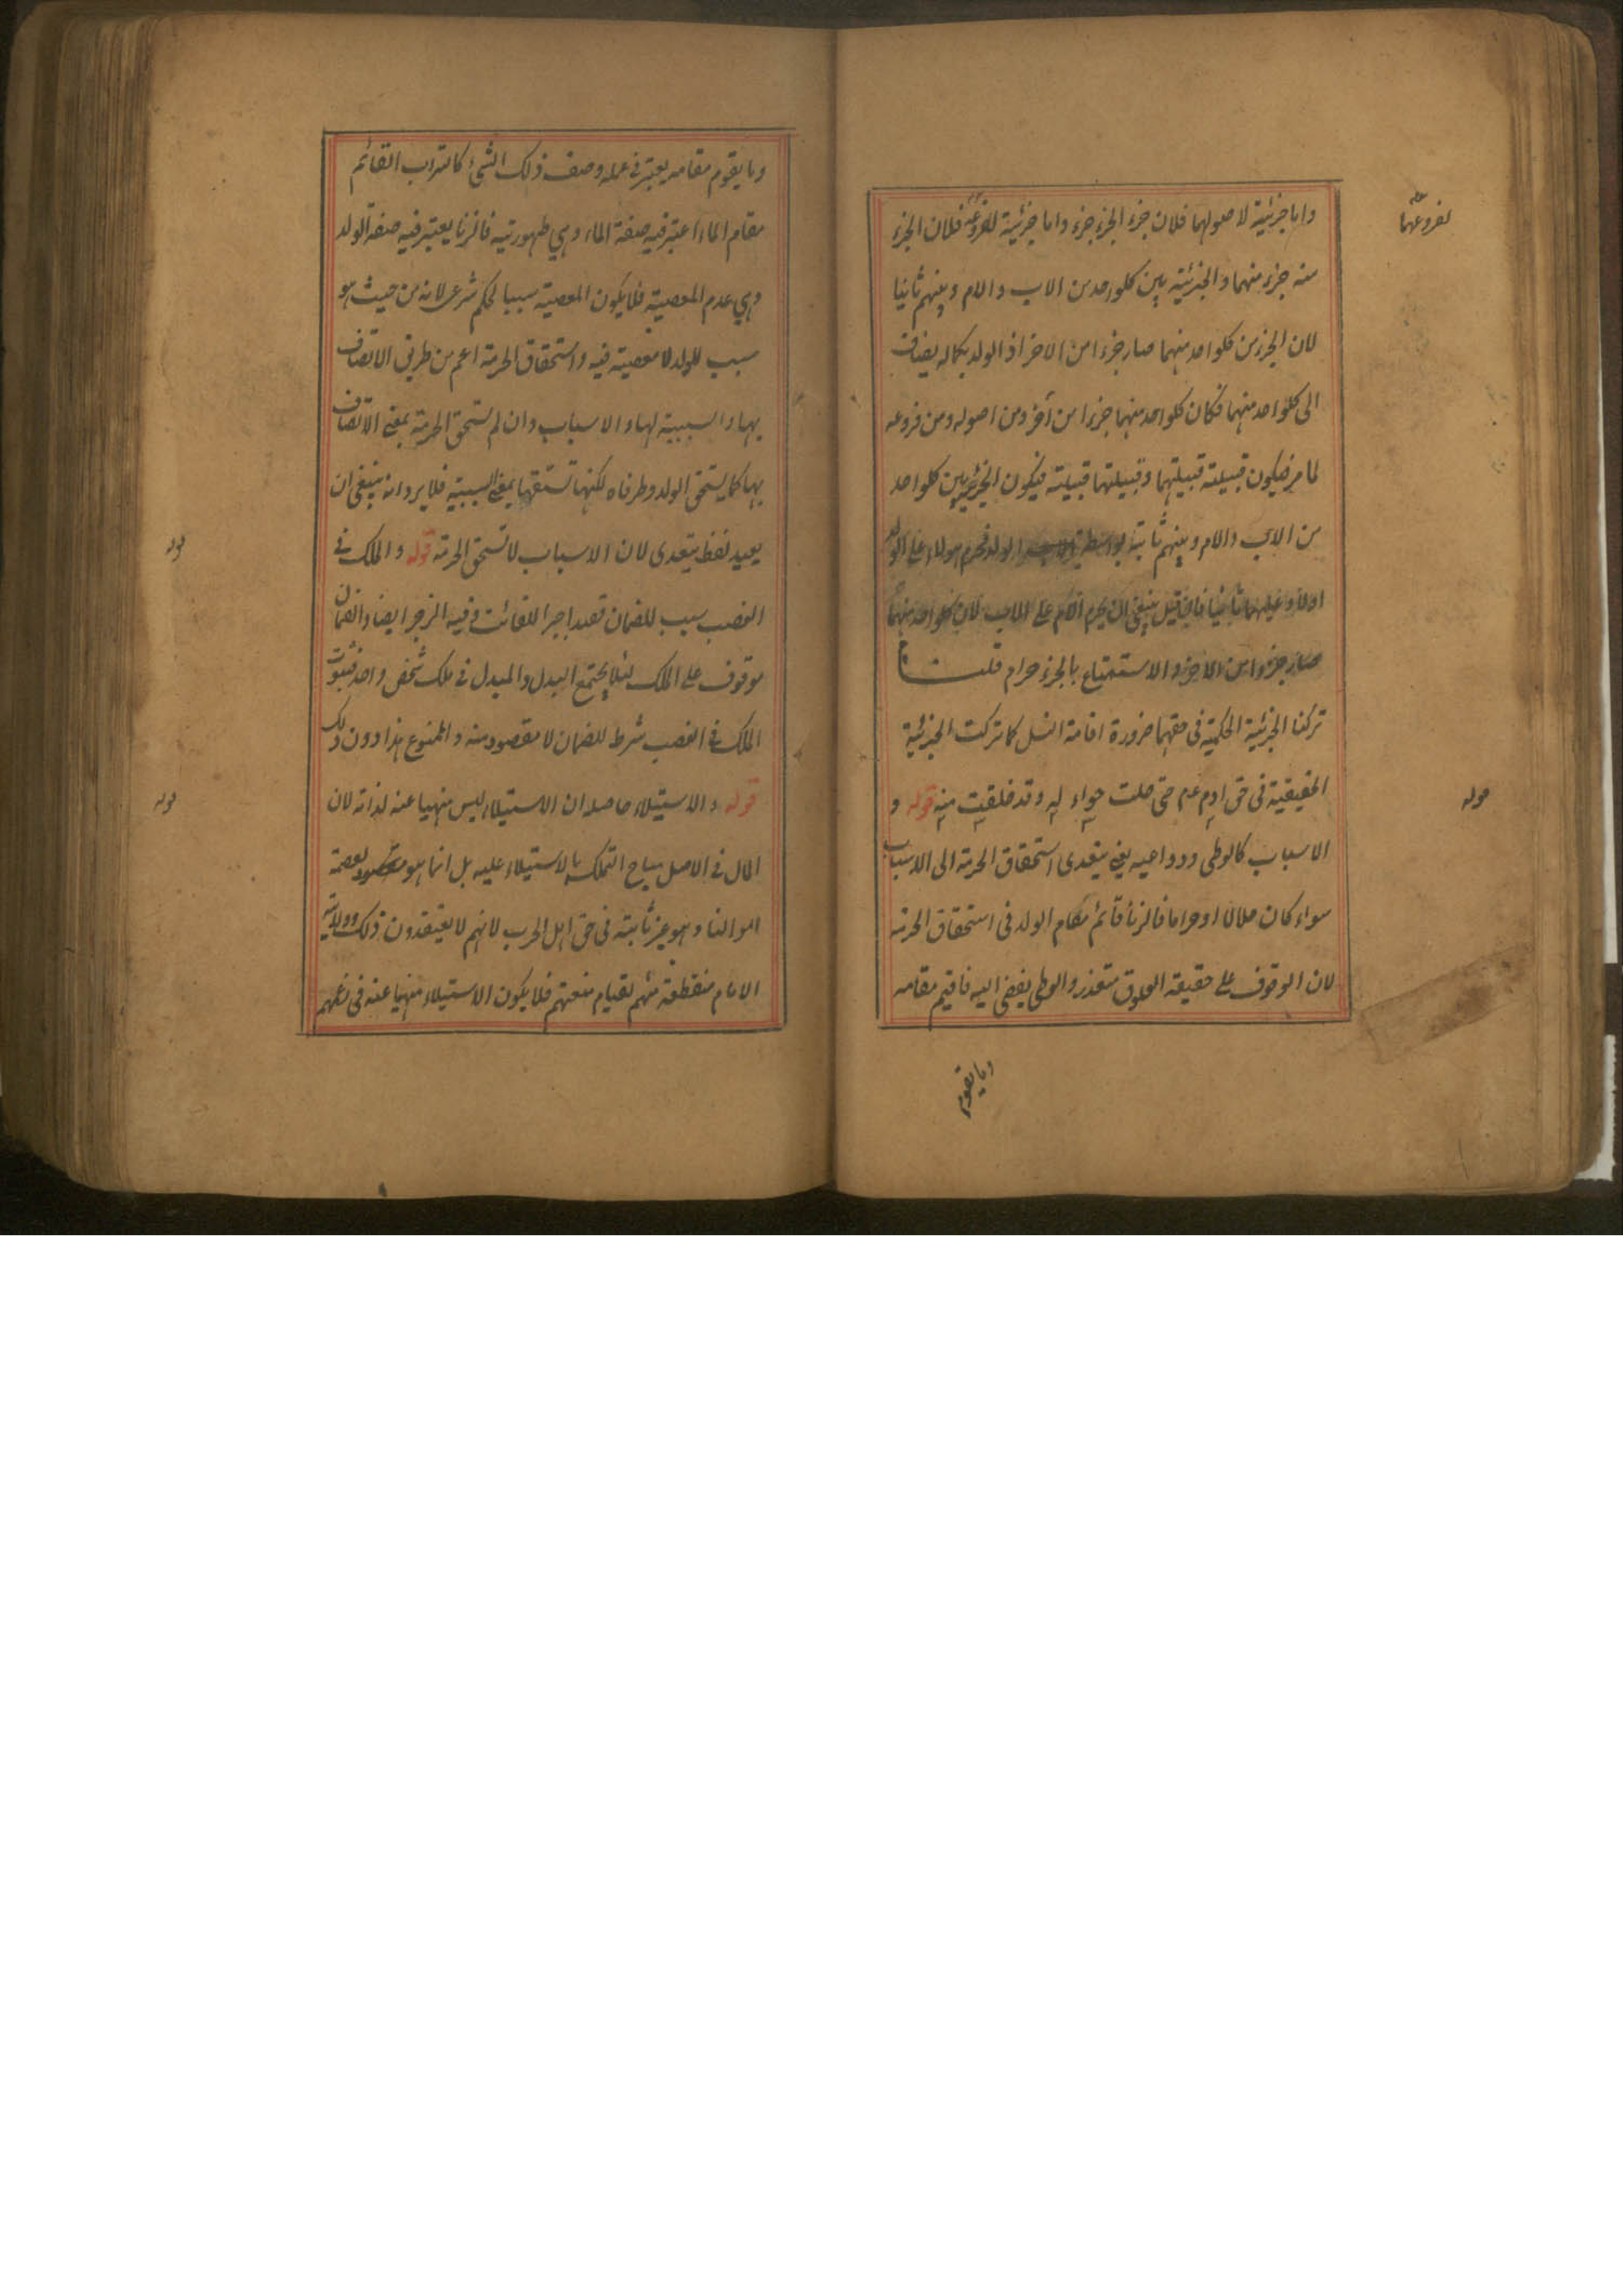 واما جزئية لاصولهما فلان جزء الجزء جزء واما جزئية لفروعه فلان الجزء
لفروعهما
منه جزء منهما والجزئية بين كلواحد من الاب والام وبينهم ثانيا
لان الجزء من كلواحد منهما صار جزءا من الاخر اذ الولد بكماله يضاف
الى كلواحد منهما فكان كلواحد منهما جزءا من آخر ومن اصوله ومن فروعه
لما مر فيكون قبيلته قبيلتهما وقبيلتهما قبيلته فيكون الجزئية بين كلواحد
من الاب والام وبينهم ثابتة بواسطة الولد فحرم هولاء على الولد
اولا وعليهما ثانيا فان قيل ينبغى ان يحرم الام على الاب لان كلواحد منهما
صار جزءا من الاخر والاستمتاع بالجزء حرام قلت
تركنا الجزئية الحكمية فى حقهما ضرورة اقامة النسل كما تركت الجزئية
الحقيقية فى حق ادم عم حتى حلت حواء له وقد خلقت منه قوله و
قوله
الاسباب كالوطى ودواعيه يعنى يتعدى استحقاق الحرمة الى الاسباب
سواء كان حلالا او حراما فالزنا قائم مقام الولد فى استحقاق الحرمة
لان الوقوف على حقيقة العلوق متعذر والوطى يفضى اليه فاقيم مقامه
وما يقوم
وما يقوم مقامه يعتبر فى عمله وصف ذلك الشئ كالتراب القائم
مقام الماء اعتبر فيه صفة الماء وهي طهوريته فالزنا يعتبر فيه صفة الولد
وهي عدم المعصية فلا يكون المعصية سببا لحكم شرعى لانه من حيث هو
سبب للولد لا معصية فيه واستحقاق الحرمة اعم من طريق الاتصاف
بها والسببية لها والاسباب وان لم تستحق الحرمة بمعنى الاتصاف
بها كما يستحق الولد وطرفاه لكنها تستحقها بمعنى السببية فلا يرد انه ينبغى ان
يعيد لفظ يتعدى لان الاسباب لا تستحق الحرمة قوله والملك فى
قوله
الغصب سبب للضمان قصدا جبرا للفائت وفيه الزجر ايضا والضمان
موقوف على الملك لئلا يجتمع البدل والمبدل فى ملك شخص واحد فثبوت
الملك فى الغصب شرط للضمان لا مقصود منه والممنوع هذا دون ذلك
قوله والاستيلاء حاصله ان الاستيلاء ليس منهيا عنه لذاته لان
قوله
المال فى الاصل مباح التملك بالاستيلاء عليه بل انما هو لعصمة
اموالنا وهو غير ثابتة فى حق اهل الحرب لانهم لا يعتقدون ذلك وولاية
الامام منقطعة منهم لقيام منعتهم فلا يكون الاستيلاء منهيا عنه فى زعمهم